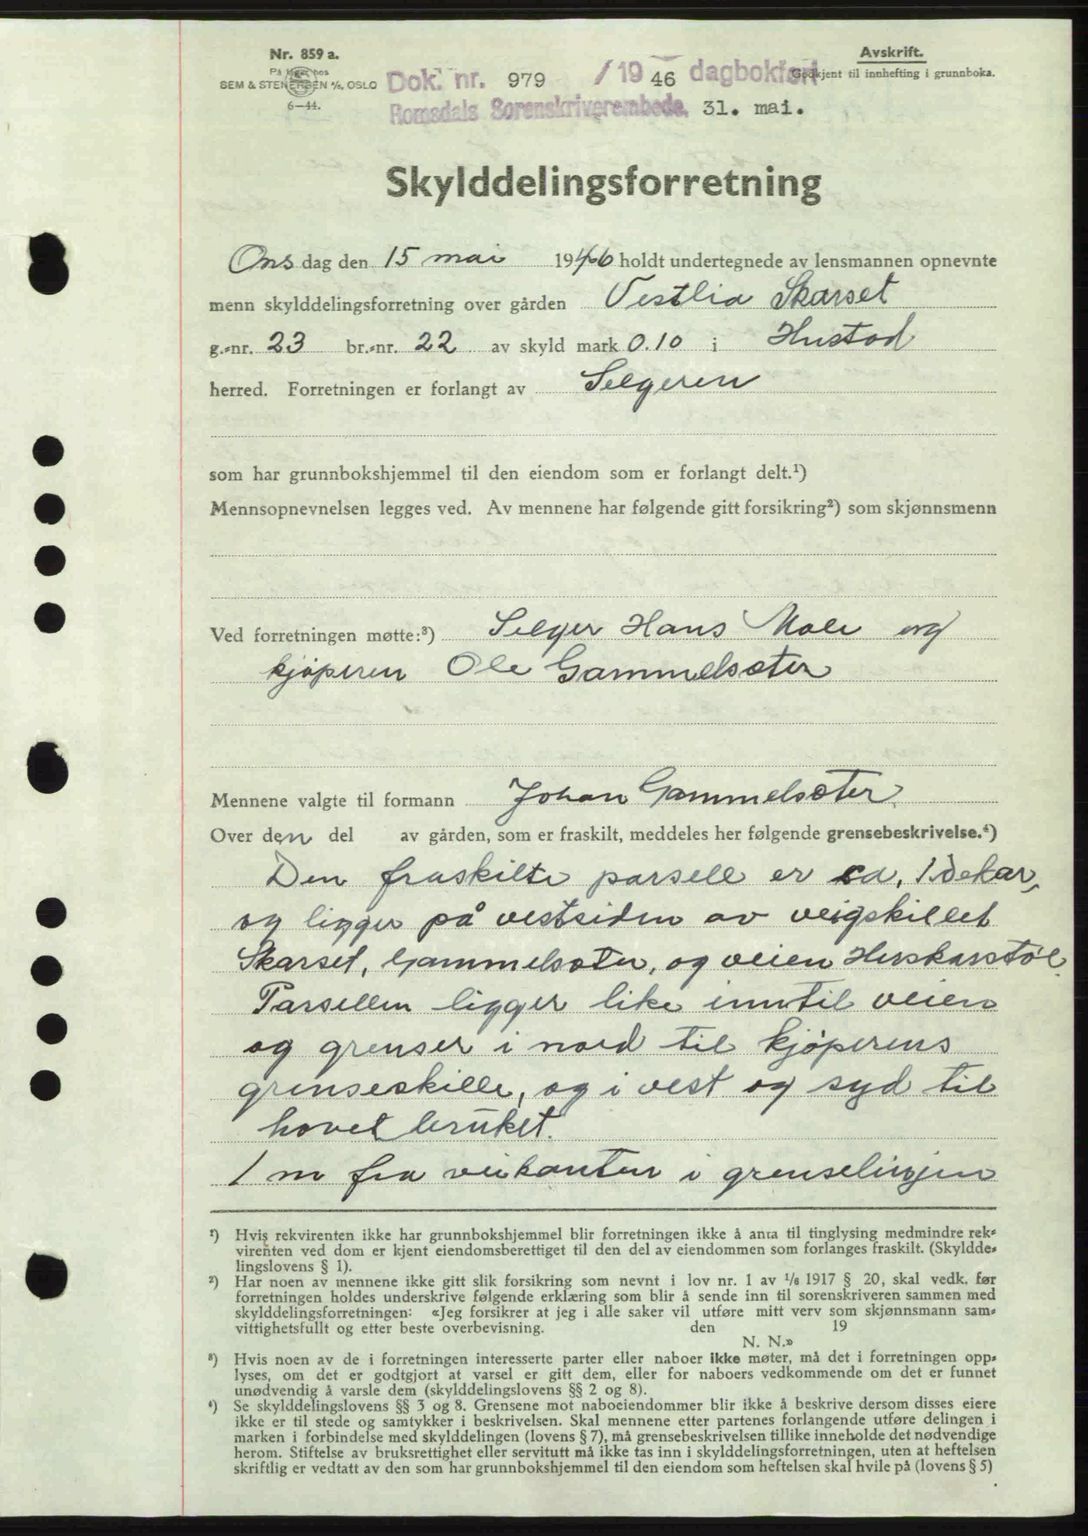 Nr. 859 a.
På lager hos
SEM & STENERSEN A/S, OSLO
6—44.
Avskrift.
Godkjent til innhefting i grunnboka.
Dok. nr. 979 / 19 46 dagbokført
Romsdals Sorenskriverembede. 31. mai.
Skylddelingsforretning
Ons dag den 15 mai 1946 holdt undertegnede av lensmannen opnevnte
menn skylddelingsforretning over gården Vestlia Skarset
g.-nr. 23 br.-nr. 22 av skyld mark 0.10 i Hustad
herred. Forretningen er forlangt av Selgeren
som har grunnbokshjemmel til den eiendom som er forlangt delt.¹)
Mennsopnevnelsen legges ved. Av mennene har følgende gitt forsikring²) som skjønnsmenn
Ved forretningen møtte:³) Selger Hans Male og
kjøperen Ole Gammelsæter
Mennene valgte til formann Johan Gammelsæter.
Over den del av gården, som er fraskilt, meddeles her følgende grensebeskrivelse.⁴)
Den fraskilte parsell er ca. 1 dekar,
og ligger på vestsiden av veigskillet
Skarset, Gammelsæter, og veien Herskarstøl.
Parsellen ligger like inntil veien
og grenser i nord til kjøperens
grenseskille, og i vest og syd til
hovetbruket.
1 m fra veikanten i grenselinjen
¹) Hvis rekvirenten ikke har grunnbokshjemmel blir forretningen ikke å anta til tinglysing medmindre rek-
virenten ved dom er kjent eiendomsberettiget til den del av eiendommen som forlanges fraskilt. (Skyldde-
lingslovens § 1).
²) Har noen av mennene ikke gitt slik forsikring som nevnt i lov nr. 1 av 1/6 1917 § 20, skal vedk. før
forretningen holdes underskrive følgende erklæring som blir å sende inn til sorenskriveren sammen med
skylddelingsforretningen: «Jeg forsikrer at jeg i alle saker vil utføre mitt verv som skjønnsmann sam-
vittighetsfullt og etter beste overbevisning. den 19
N. N.»
³) Hvis noen av de i forretningen interesserte parter eller naboer ikke møter, må det i forretningen opp-
lyses, om det er godtgjort at varsel er gitt dem, eller for naboers vedkommende om det er funnet
unødvendig å varsle dem (skylddelingslovens §§ 2 og 8).
⁴) Se skylddelingslovens §§ 3 og 8. Grensene mot naboeiendommer blir ikke å beskrive dersom disses eiere
ikke er til stede og samtykker i beskrivelsen. Skal mennene etter partenes forlangende utføre delingen i
marken i forbindelse med skylddelingen (lovens § 7), må grensebeskrivelsen tillike inneholde det nødvendige
herom. Stiftelse av bruksrettighet eller servitutt må ikke tas inn i skylddelingsforretningen, uten at heftelsen
skriftlig er vedtatt av den som har grunnbokshjemmel til den eiendom som heftelsen skal hvile på (lovens § 5)